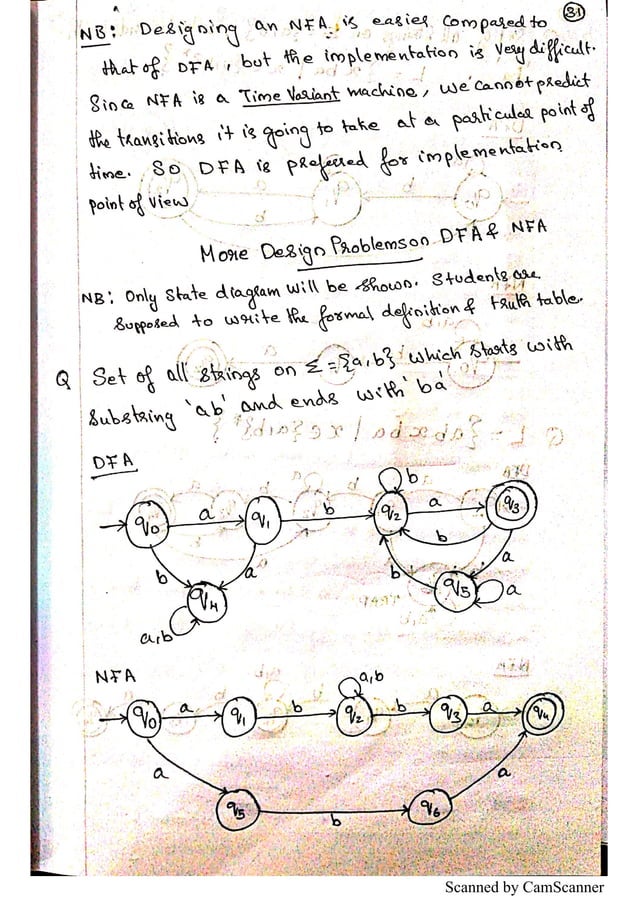 31
NB: Designing an NFA is easier compared to
that of DFA, but the implementation is very difficult.
Since NFA is a Time Variant machine, we cannot predict
the transitions it is going to take at a particular point of
time. So DFA is preferred for implementation
point of view
More Design Problems on DFA & NFA
NB: Only state diagram will be shown. Students are
supposed to write the formal definition & truth table.
Q Set of all strings on Σ={a,b} which starts with
substring 'ab' and ends with 'ba'
DFA
b
q0 a q1 b q2 a q3
b
b a a
q4 b q5 a
a,b
NFA
a,b
q0 a q1 b q2 b q3 a q4
a a
q5 b q6
Scanned by CamScanner